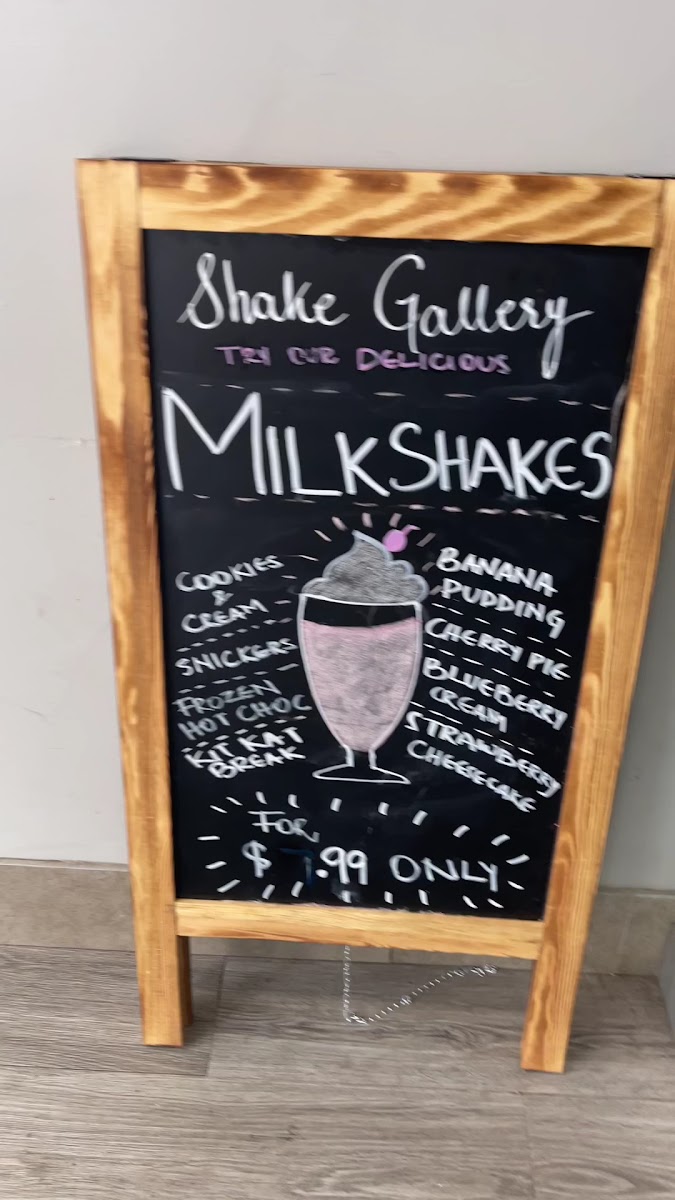 Shake Gallery
TRY OUR DELICIOUS
MILKSHAKES
COOKIES
&
CREAM
SNICKERS
FROZEN
HOT CHOC
KIT KAT
BREAK
BANANA
PUDDING
CHERRY PIE
BLUEBERRY
CREAM
STRAWBERRY
CHEESECAKE
FOR
$ .99 ONLY